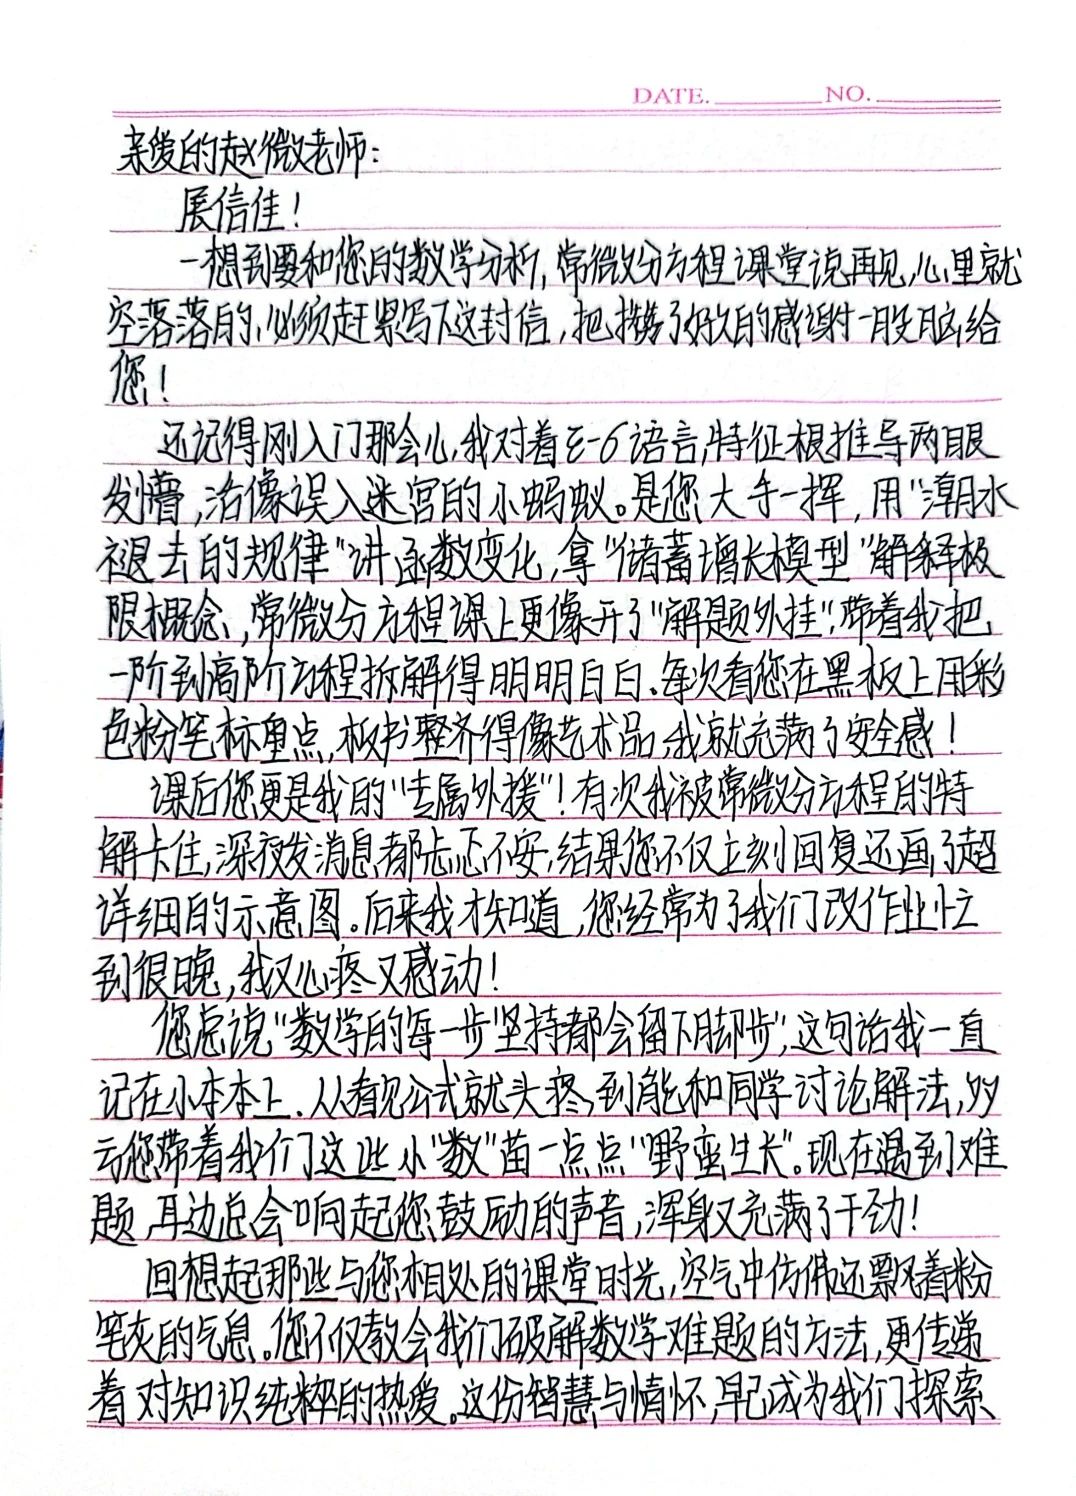 DATE.________NO.________
亲爱的赵微老师:
展信佳!
一想到要和您的数学分析,常微分方程课堂说再见,心里就
空落落的,必须赶紧写下这封信,把攒了好久的感谢一股脑给
您!
还记得刚入门那会儿,我对着ε-δ语言,特征根推导两眼
发懵,活像误入迷宫的小蚂蚁。是您大手一挥,用"潮水
褪去的规律"讲函数变化,拿"储蓄增长模型"解释极
限概念,常微分方程课上更像开了"解题外挂",带着我把
一阶到高阶方程拆解得明明白白。每次看您在黑板上用彩
色粉笔标重点,板书整齐得像艺术品,我就充满了安全感!
课后您更是我的"专属外援"!有次我被常微分方程的特
解卡住,深夜发消息都忐忑不安,结果您不仅立刻回复还画了超
详细的示意图。后来我才知道,您经常为了我们改作业忙
到很晚,我又心疼又感动!
您总说"数学的每一步坚持都会留下脚步",这句话我一直
记在小本本上.从看见公式就头疼,到能和同学讨论解法,多
亏您带着我们这些小"数"苗一点点"野蛮生长"。现在遇到难
题,耳边总会响起您鼓励的声音,浑身又充满了干劲!
回想起那些与您相处的课堂时光,空气中仿佛还飘着粉
笔灰的气息。您不仅教会我们破解数学难题的方法,更传递
着对知识纯粹的热爱。这份智慧与情怀,早已成为我们探索